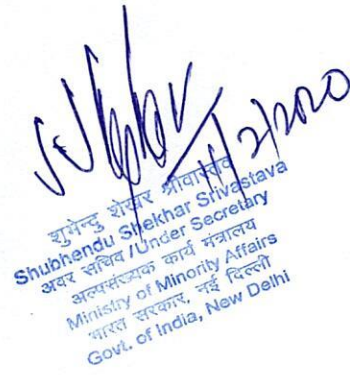 11/2/2020
शुभेन्दु शेखर श्रीवास्तव
Shubhendu Shekhar Srivastava
अवर सचिव / Under Secretary
अल्पसंख्यक कार्य मंत्रालय
Ministry of Minority Affairs
भारत सरकार, नई दिल्ली
Govt. of India, New Delhi